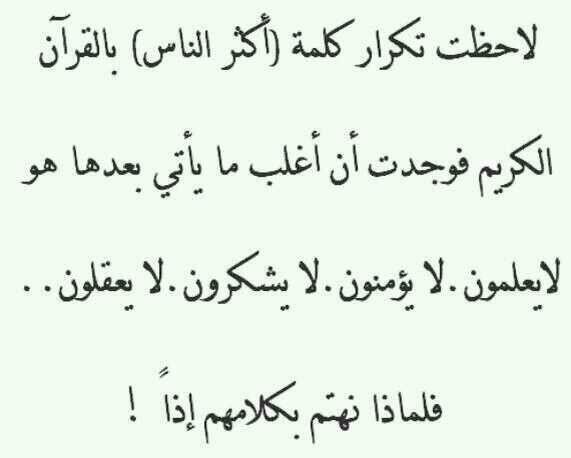 لاحظت تكرار كلمة (أكثر الناس) بالقرآن
الكريم فوجدت أن أغلب ما يأتي بعدها هو
لايعلمون.لا يؤمنون.لا يشكرون.لا يعقلون. .
فلماذا نهتم بكلامهم إذاً !